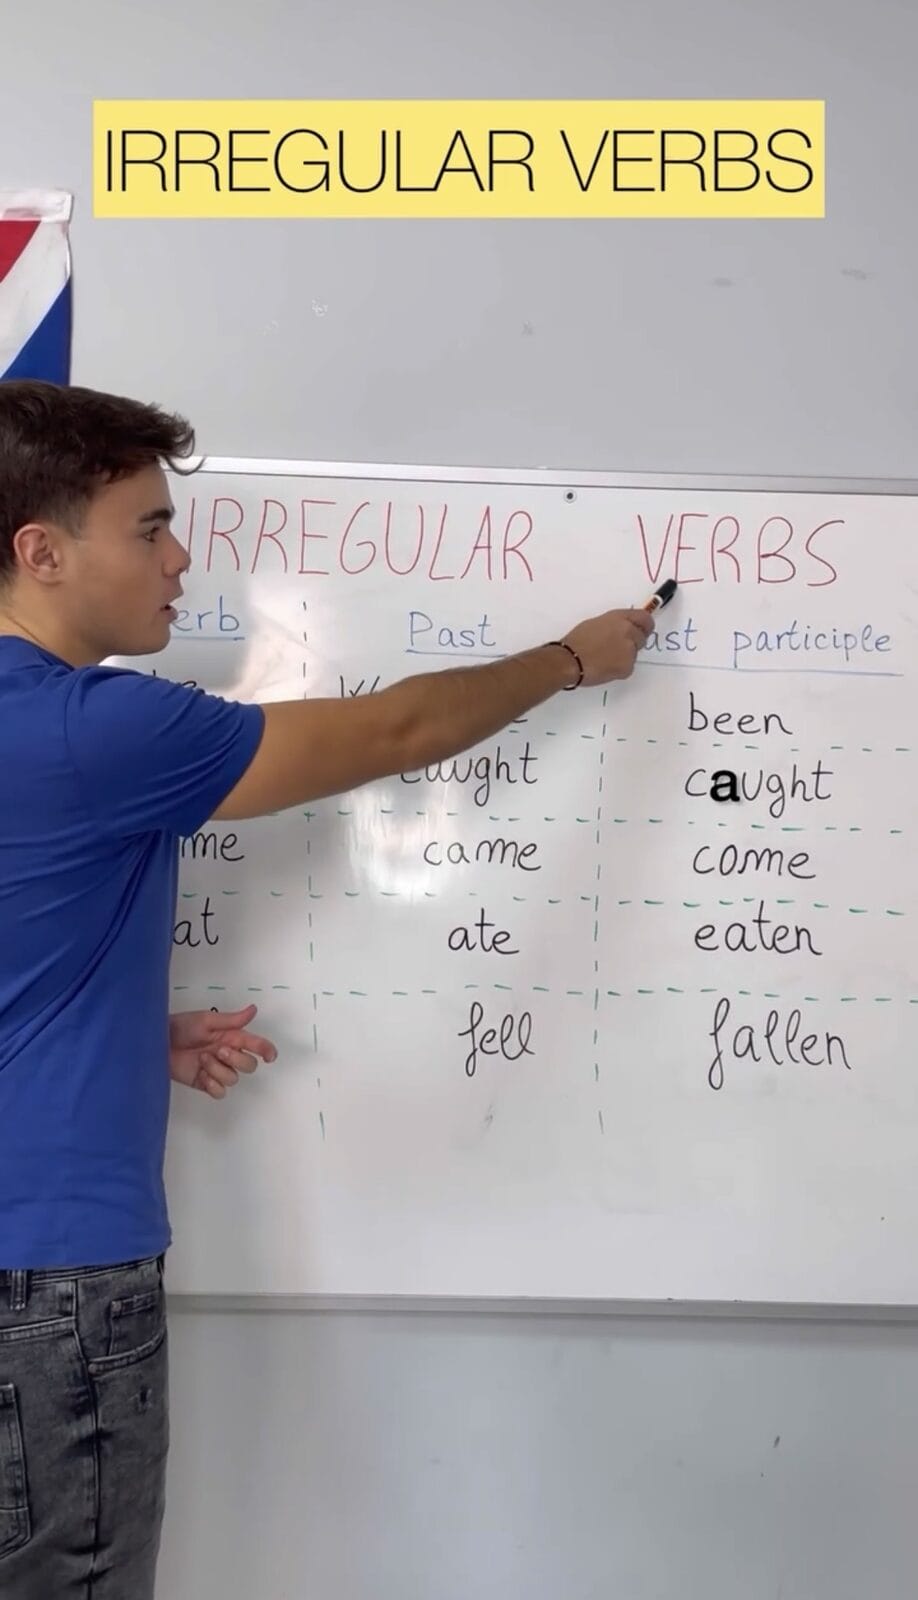 IRREGULAR VERBS
IRREGULAR VERBS
erb Past ast participle
been
caught caught
me came come
at ate eaten
fell fallen